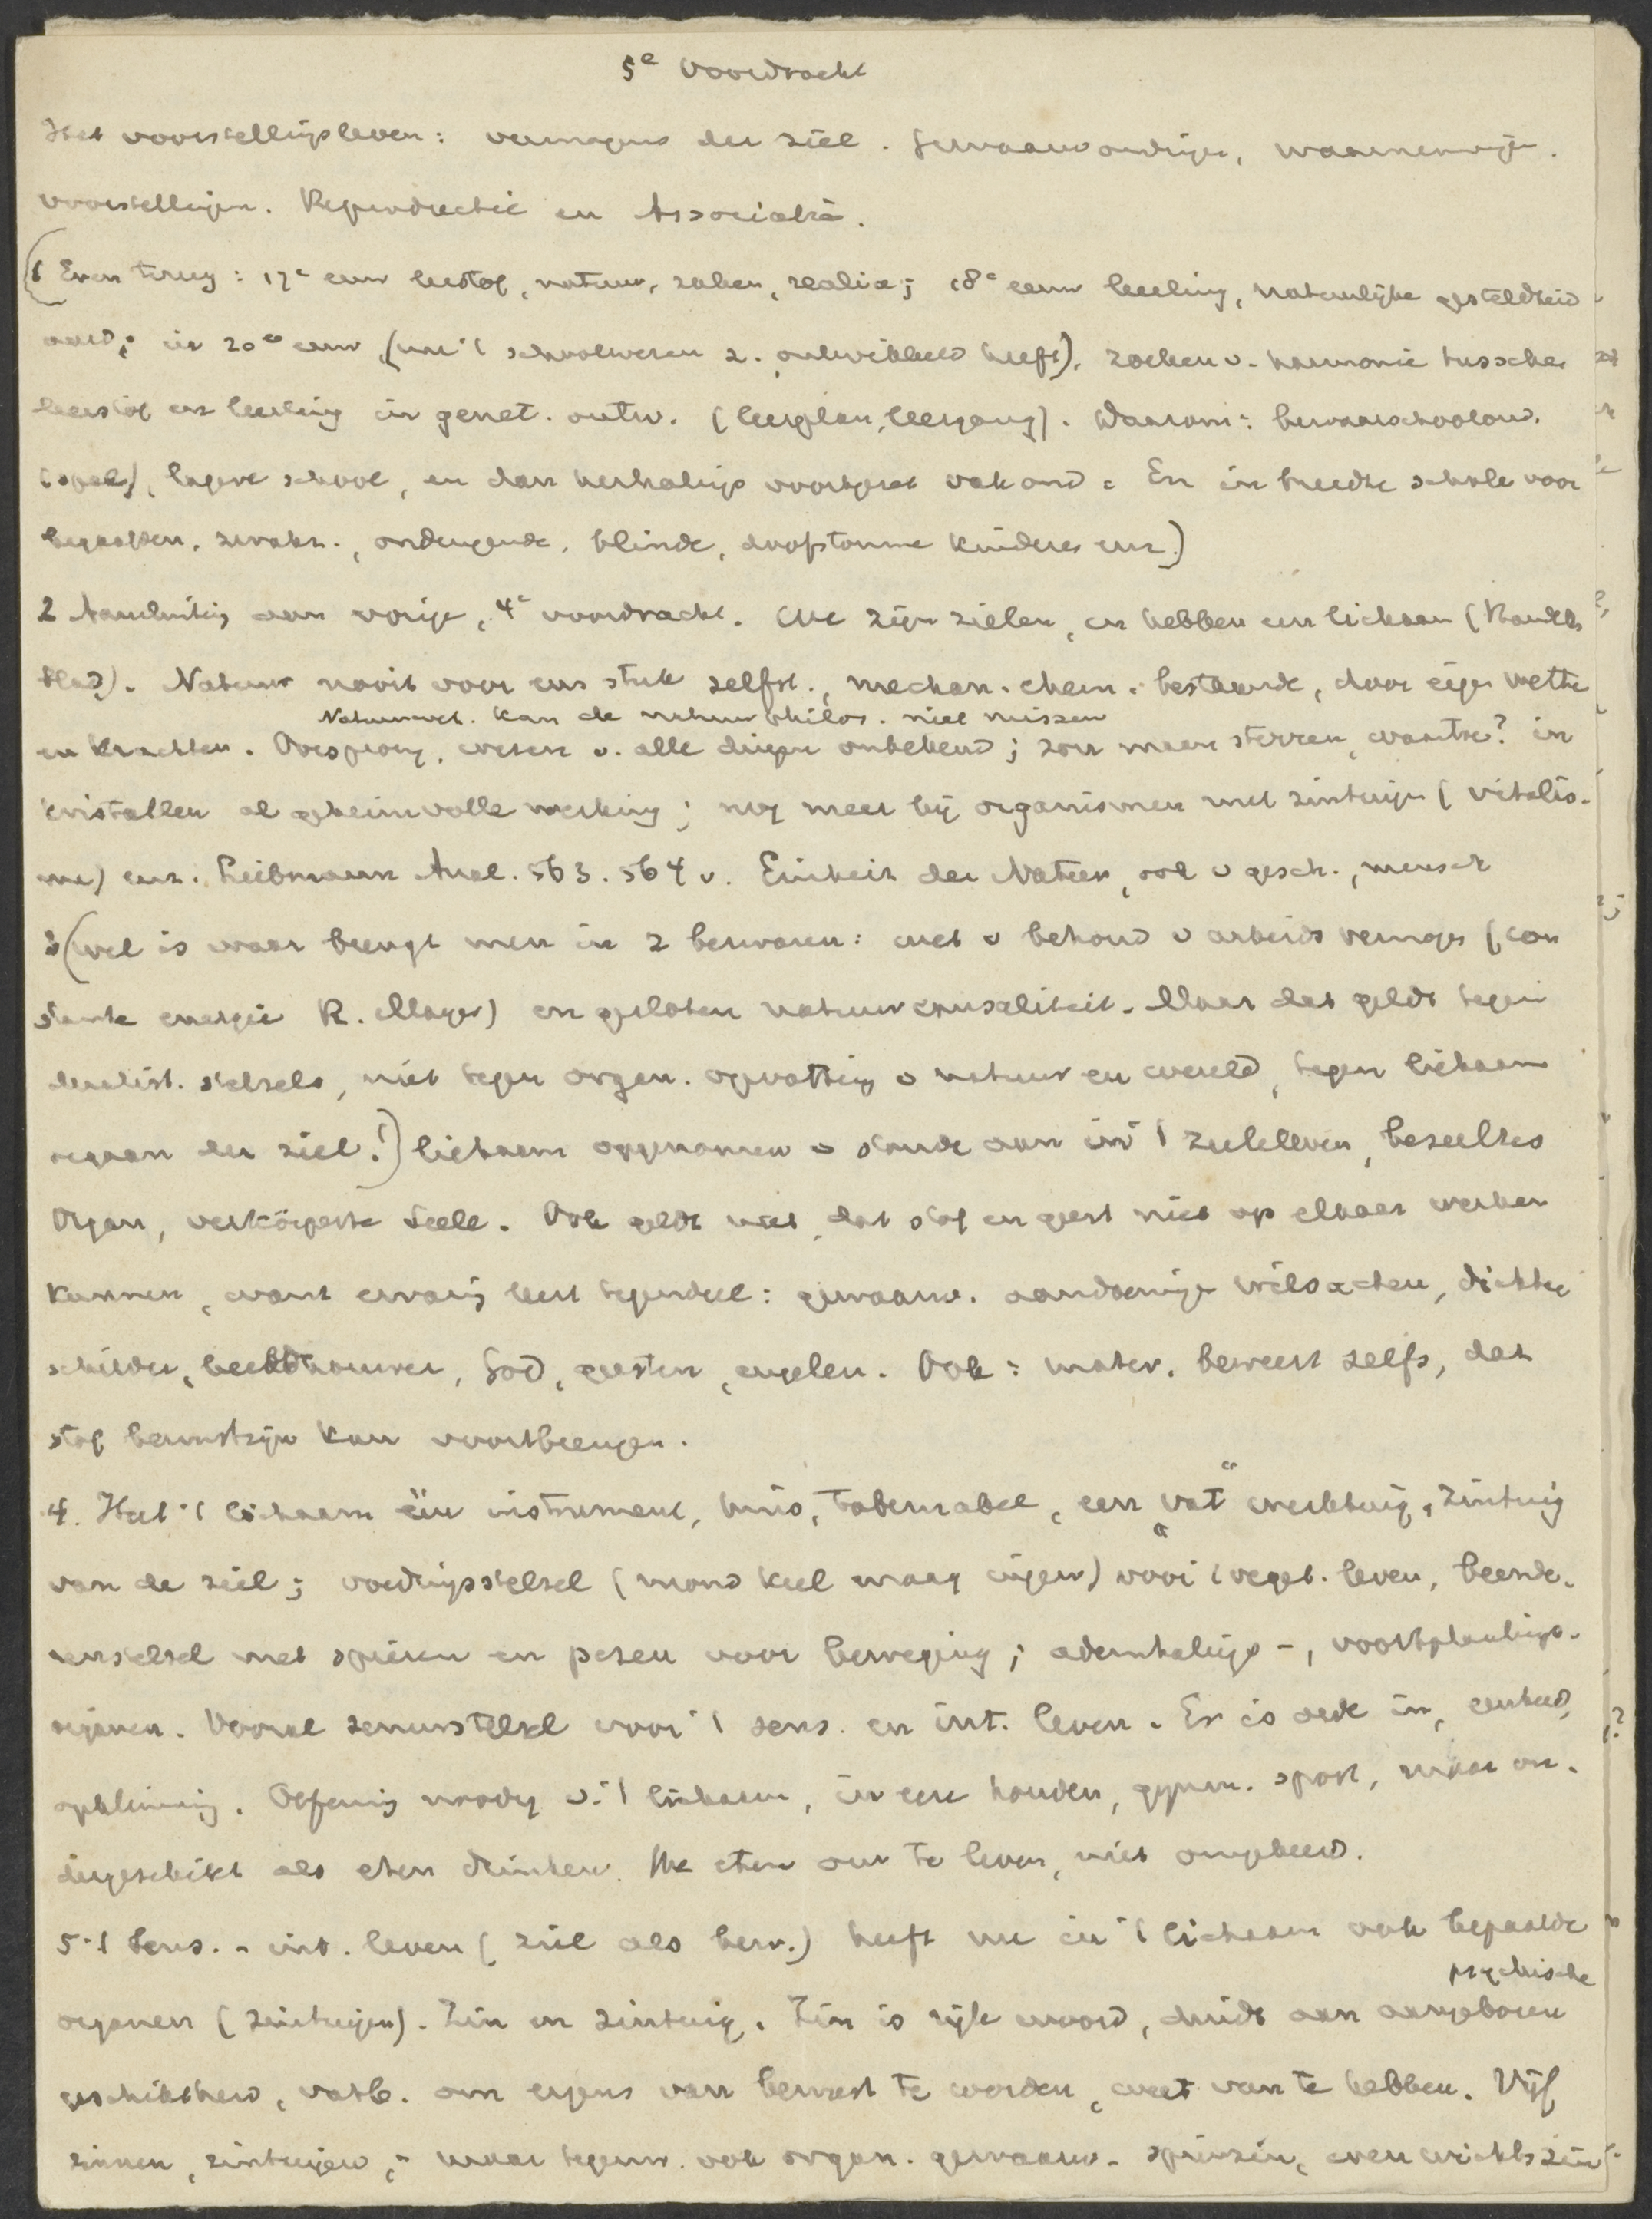 5e Voordracht
Het voorstellingsleven: vermogens der ziel. Gewaarwordingen, waarnemingen.
voorstellingen. Reproductie en Associatie.
(1 Even terug: 17e eeuw leerstof, natuur, zaken, realia; 18e eeuw leerling, natuurlijke gesteldheid
aard; in 20e eeuw (nu 't schoolwezen z. ontwikkeld heeft), zoeken v. harmonie tusschen
leerstof en leerling in genet. ontw. (leerplan, leergang). Daarom: bewaarschoolond.
(spel), lagere school, en dan herhalings voortgezet vakond. En in breedte schole voor
begaafden, zwakz., ondeugende, blinde, doofstomme kinderen enz.)
2 Aansluiting aan vorige, 4e voordracht. We zijn zielen, en hebben een lichaam (
blad). Natuur nooit voor ons stuk zelfst., mechan. chem. bestaande, door eigen wetten
Natuurwet. kan de natuurphilos. niet missen
en krachten. Oorsprong, wezen v. alle dingen onbekend; zon maan sterren, waartoe? in
kristallen al geheimvolle werking; nog meer bij organismen met zintuigen (vitalis-
me) enz. Liebmann Anal. 563. 564 v. Einheit der Natur, ook v gesch., mensch
3 (wel is waar brengt men in 2 bezwaren: wet v behoud v arbeidsvermogen (con
stante energie R. Mayer) en gesloten natuurcausaliteit. Maar dat geldt tegen
dualist. stelsels, niet tegen organ. opvatting v natuur en wereld, tegen lichaam
orgaan der ziel!) lichaam opgenomen v stonde aan in 't zieleleven, beseeltes
Organ, verkörperte Seele. Ook geldt niet, dat stof en geest niet op elkaar werken
kunnen, want ervaring leert tegendeel: gewaarw. aandoeningen wilsacten, dichter
schilder, beeldhouwer, God, geesten, engelen. Ook: mater. beweert zelfs, dat
stof bewustzijn kan voortbrengen.
4. Heel 't lichaam één instrument, huis, tabernakel, een "vat" werktuig, zintuig
van de ziel; voedingsstelsel (mond keel maag ingew) voor 't veget. leven, beende-
renstelsel met spieren en pezen voor beweging; ademhalings-, voortplantings-
organen. Vooral zenuwstelsel voor 't sens. en int. leven. Er is orde in, eenheid,
opklimming. Oefening noodig v. 't lichaam, in eere houden, gymn. sport, maar on-
dergeschikt als eten drinken. We eten om te leven, niet omgekeerd.
5 't Sens. - int. leven (ziel als bew.) heeft nu in 't lichaam ook bepaalde
psychische
organen (zintuigen). Zin en zintuig. Zin is rijk woord, duidt aan aangeboren
geschiktheid, vatb. om ergens van bewust te worden, weet van te hebben. Vijf
zinnen, zintuigen, - maar tegenw. ook organ. gewaarw. spierzin, evenwichtszin